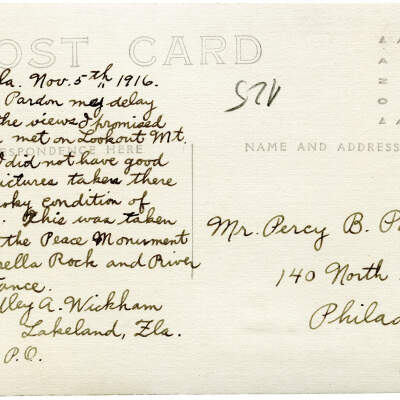 OST CARD
la. Nov. 5th, 1916.
Pardon my delay
the views I promised
met on Lookout Mt.
did not have good
ictures taken there
oky condition of
This was taken
the Peace Monument
rella Rock and River
tance.
ley A. Wickham
Lakeland, Fla.
P.O.
RESPONDENCE HERE
NAME AND ADDRESS
V25
Mr. Percy B. P
140 North
Philad